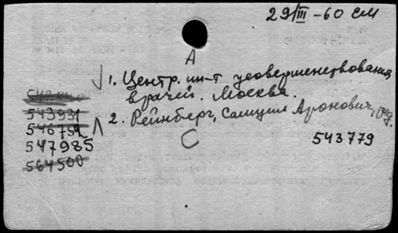 29/III - 60 см
А
1. Центр. ин-т усовершенствования
врачей. Москва.
2. Рейнберг, Самуил Аронович, ред.
С
543779
543931
546752
547985
564500